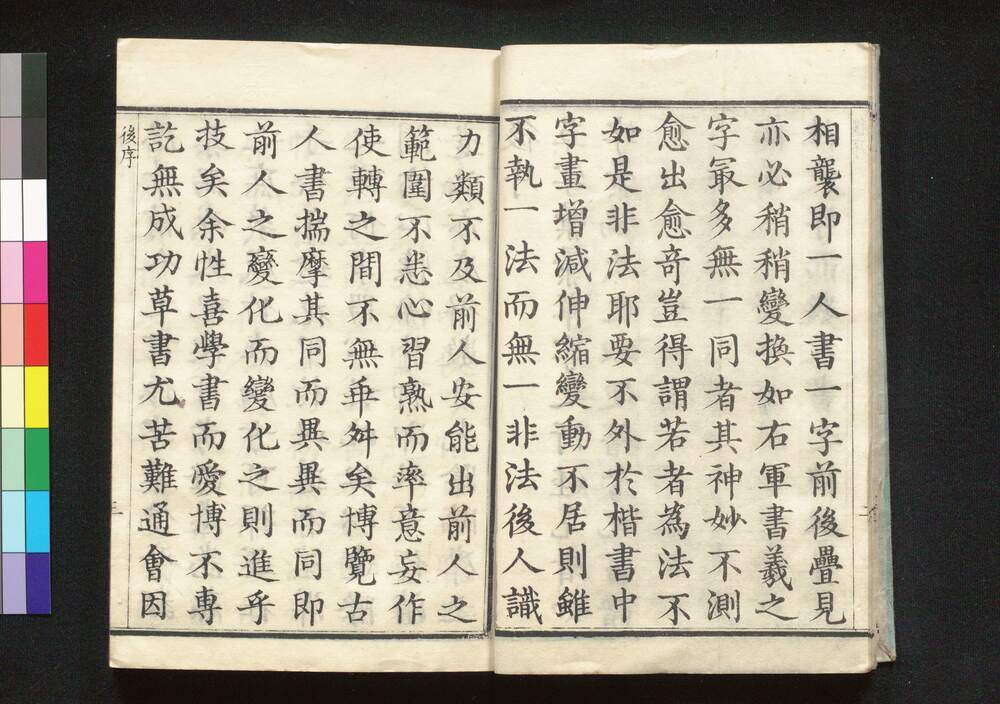 相襲即一人書一字前後疊見
亦必稍稍變換如右軍書羲之
字冣多無一同者其神妙不測
愈出愈竒豈得謂若者為法不
如是非法耶要不外於楷書中
字畫增減伸縮變動不居則雖
不執一法而無一非法後人識
力類不及前人安能出前人之
範圍不悉心習熟而率意妄作
使轉之間不無乖舛矣博覽古
人書揣摩其同而異異而同即
前人之變化而變化之則進乎
技矣余性喜學書而愛博不專
訖無成功草書尤苦難通會因
後序
二
三